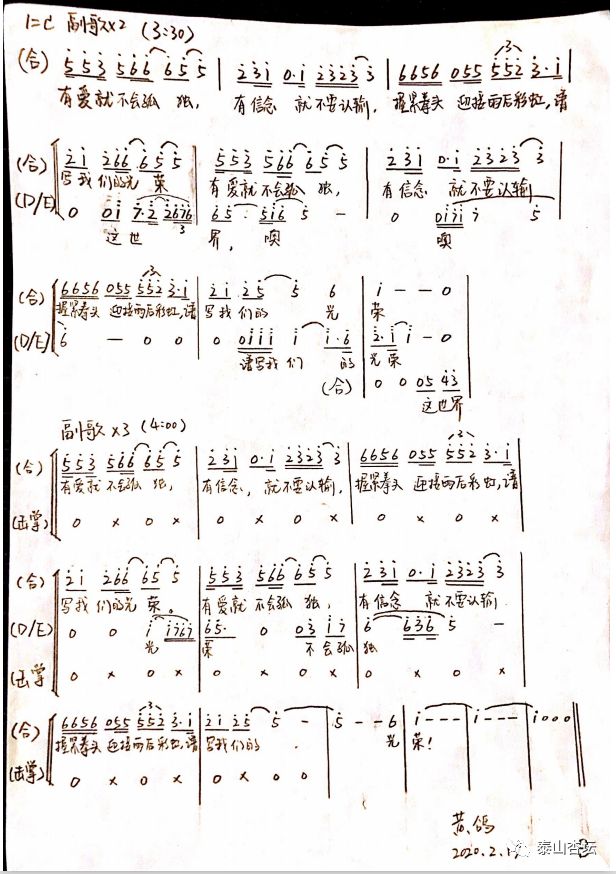 1=C 副歌x2 (3:30)
(合) 553 566 655 | 231 0·1 23233 | 6656 055 552 3·1 |
有爱就不会孤 独, 有信念 就不要认输, 握紧拳头 迎接雨后彩虹,谱
(合) 21 266 655 | 553 566 655 | 231 0·1 2323 3
写我们的光 荣 有爱就不会孤 独, 有信念 就不要认输
(D/E) 0 01 7·2 2676 3 | 65· 516 5 - | 0 0171 7 5
这世 界, 噢 噢
(合) 6656 055 552 3·1 | 21 25 5 6 | 1 - - 0
握紧拳头 迎接雨后彩虹,谱 写我们的 光 荣
(D/E) 6 - 0 0 | 0 0111 1 1·6 | 2·1 1 - 0
谱写我们 的 光荣
(合) 0 0 05 43
这世界
副歌x3 (4:00)
(合) 553 566 655 | 231 0·1 2323 3 | 6656 055 552 3·1
有爱就 不会孤 独, 有信念, 就不要认输, 握紧拳头 迎接雨后彩虹,谱
(击掌) 0 x 0 x | 0 x 0 x | 0 x 0 x
(合) 21 266 65 5 | 553 566 65 5 | 231 0·1 2323 3
写我们的光 荣。 有爱就 不会孤 独, 有信念 就不要认输
(D/E) 0 0 1 1767 | 65· 0 03 17 | 6 636 5 -
光 荣 不会孤 独
(击掌 0 x 0 x | 0 x 0 x | 0 x 0 x
(合) 6656 055 552 3·1 | 21 25 5 - | 5 - - 6 | 1 - - - | 1 - - - | 1 0 0 0
握紧拳头 迎接雨后彩虹,谱 写我们的 光 荣!
(击掌) 0 x 0 x | 0 x 0 0
黄鸽
2020.2.1
泰山杏坛